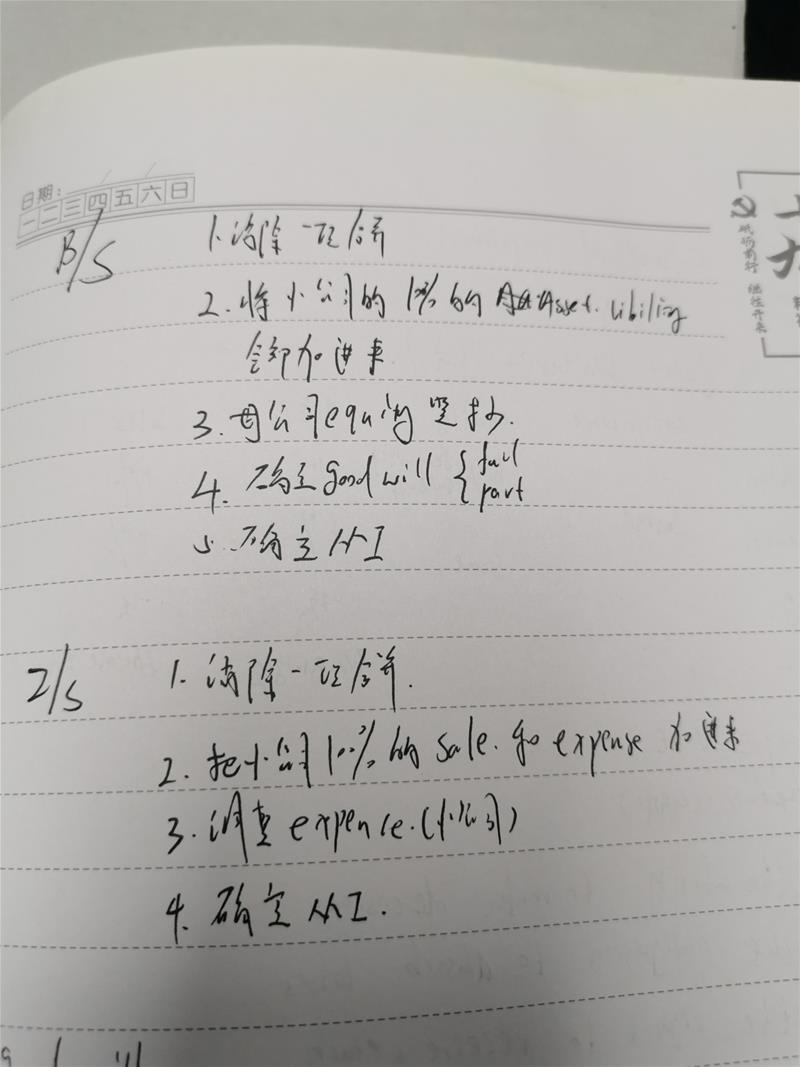 日期:
一 二 三 四 五 六 日
B/S
1. 消除一项合并
2. 将小公司的 100% 的 Asset. libility
全部加进来
3. 母公司 equity 照抄.
4. 确定 good will { full
part
5. 确定 MI
I/S
1. 消除一项合并.
2. 把小公司 100% 的 sale. 和 expense 加进来
3. 调查 expence. (小公司)
4. 确定 MI.
砥砺前行 继往开来